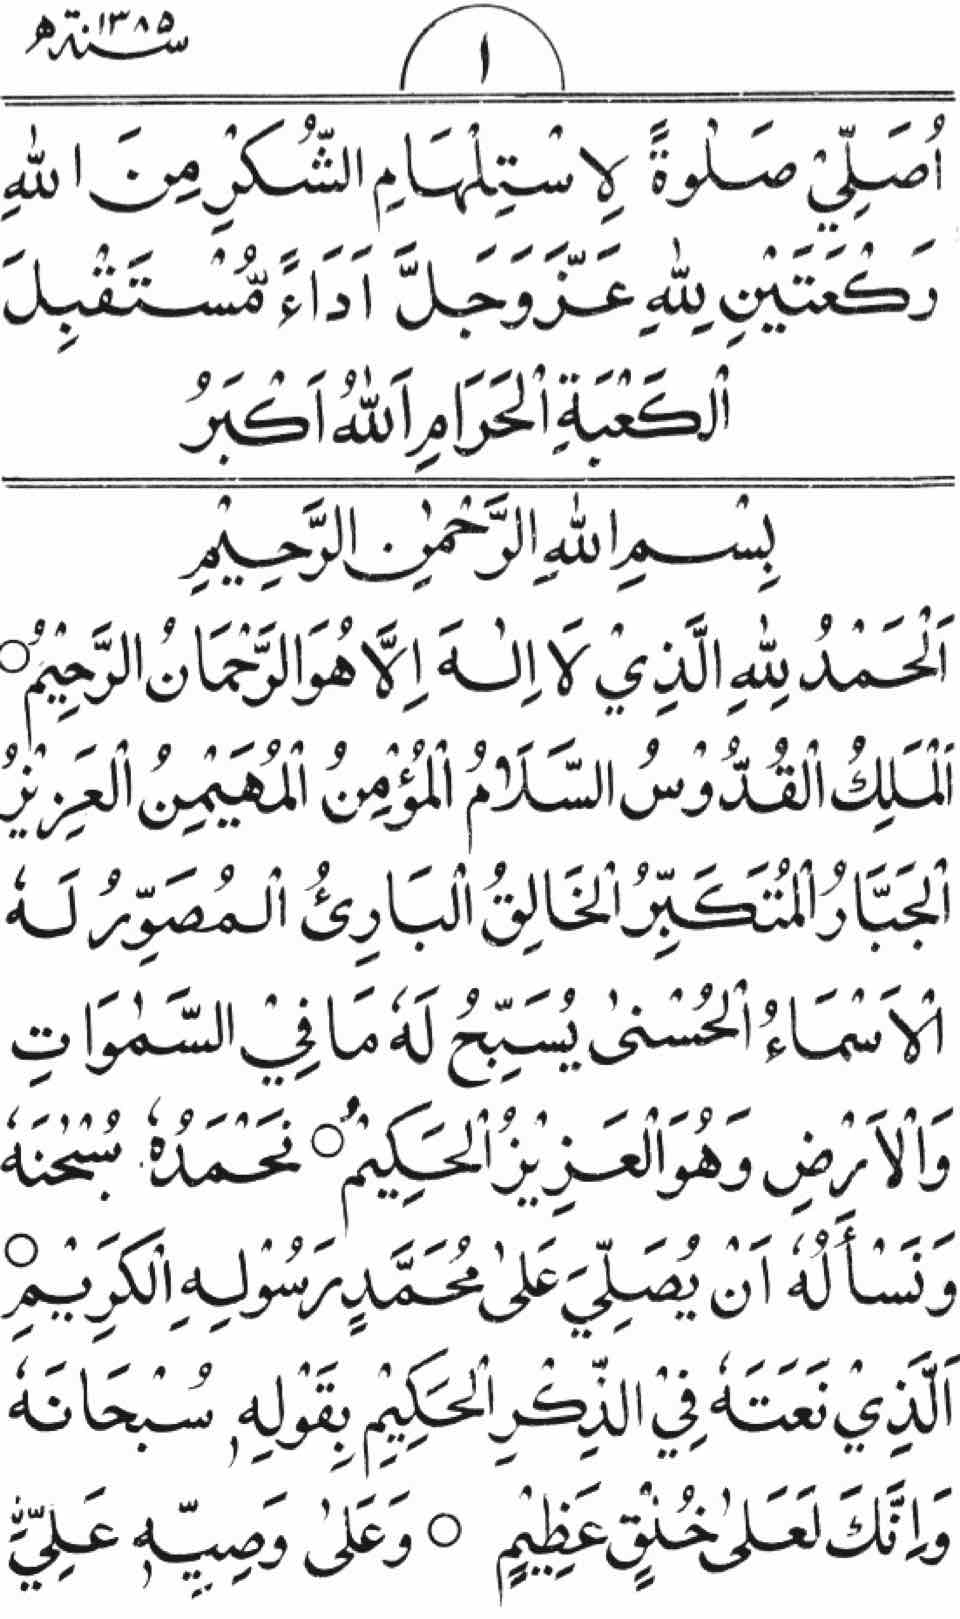 سنة ١٣٨٥ھ
١
اُصَلِّيْ صَلٰوةً لِاسْتِلْهَامِ الشُّكْرِ مِنَ اللهِ
رَكْعَتَيْنِ لِلّٰهِ عَزَّ وَجَلَّ اَدَاءً مُّسْتَقْبِلَ
الْكَعْبَةِ الْحَرَامِ اَللهُ اَكْبَرُ
بِسْمِ اللهِ الرَّحْمٰنِ الرَّحِيْمِ
اَلْحَمْدُ لِلّٰهِ الَّذِيْ لَا اِلٰهَ اِلَّا هُوَ الرَّحْمَانُ الرَّحِيْمُ ○
اَلْمَلِكُ الْقُدُّوْسُ السَّلَامُ الْمُؤْمِنُ الْمُهَيْمِنُ الْعَزِيْزُ
الْجَبَّارُ الْمُتَكَبِّرُ الْخَالِقُ الْبَارِئُ الْمُصَوِّرُ لَهٗ
الْاَسْمَاءُ الْحُسْنٰى يُسَبِّحُ لَهٗ مَا فِيْ السَّمٰوَاتِ
وَالْاَرْضِ وَهُوَ الْعَزِيْزُ الْحَكِيْمُ ○ نَحْمَدُهٗ سُبْحٰنَهٗ
وَنَسْأَلُهٗ اَنْ يُصَلِّيَ عَلىٰ مُحَمَّدٍ رَسُوْلِهِ الْكَرِيْمِ ○
اَلَّذِيْ نَعَتَهٗ فِيْ الذِّكْرِ الْحَكِيْمِ بِقَوْلِهٖ سُبْحَانَهٗ
وَاِنَّكَ لَعَلىٰ خُلُقٍ عَظِيْمٍ ○ وَعَلىٰ وَصِيِّهٖ عَلِيِّ